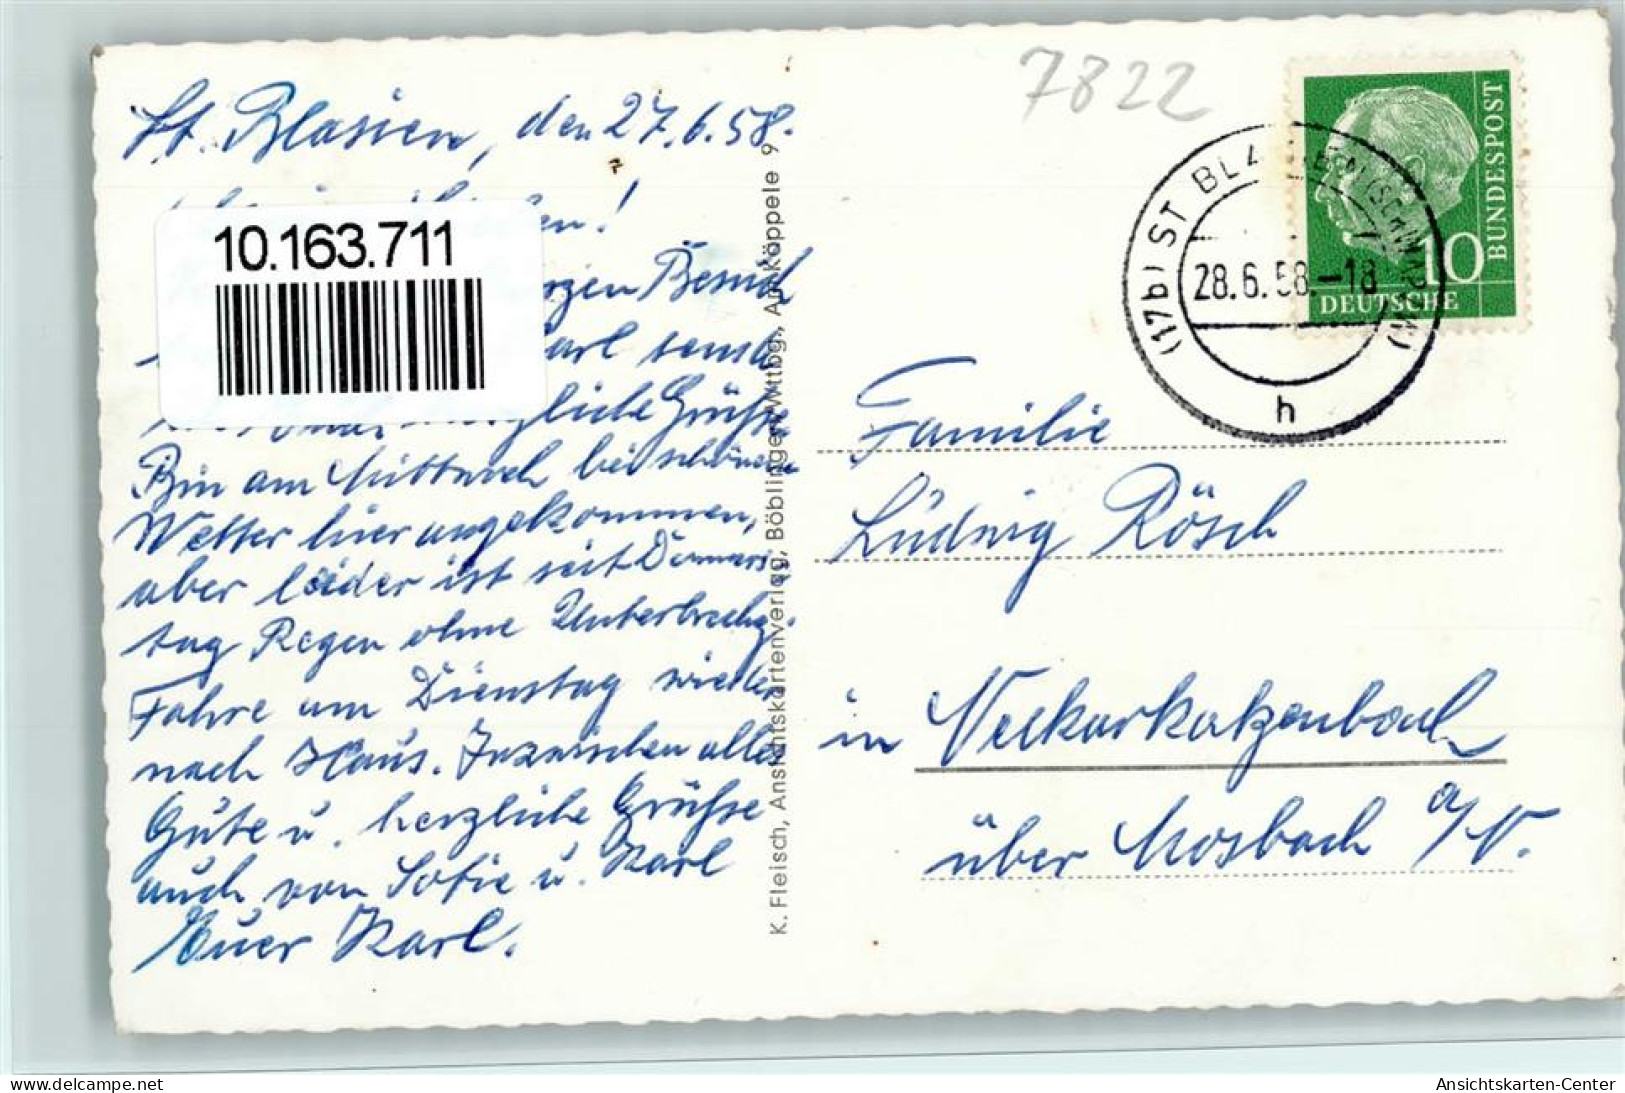 St. Blasien, den 27.6.58.
10.163.711
Besuch
Karl
herzliche Grüße
Bin am Mittwoch bei schönem
Wetter hier angekommen,
aber leider ist seit Donners
tag Regen ohne Unterbrechg.
Fahre am Dienstag wieder
nach Haus. Inzwischen alles
Gute u. herzliche Grüße
auch von Sofie u. Karl
Euer Karl.
K. Fleisch, Ansichtskartenverlag, Böblingen/Wttbg., Am Käppele 9
7822
DEUTSCHE
BUNDESPOST
10
(17b) ST BLASIEN (SCHWARZW)
28.6.58.-18
h
Familie
Ludwig Rösch
in Neckarkatzenbach
über Mosbach a/N.
oldthing.de
Ansichtskarten-Center